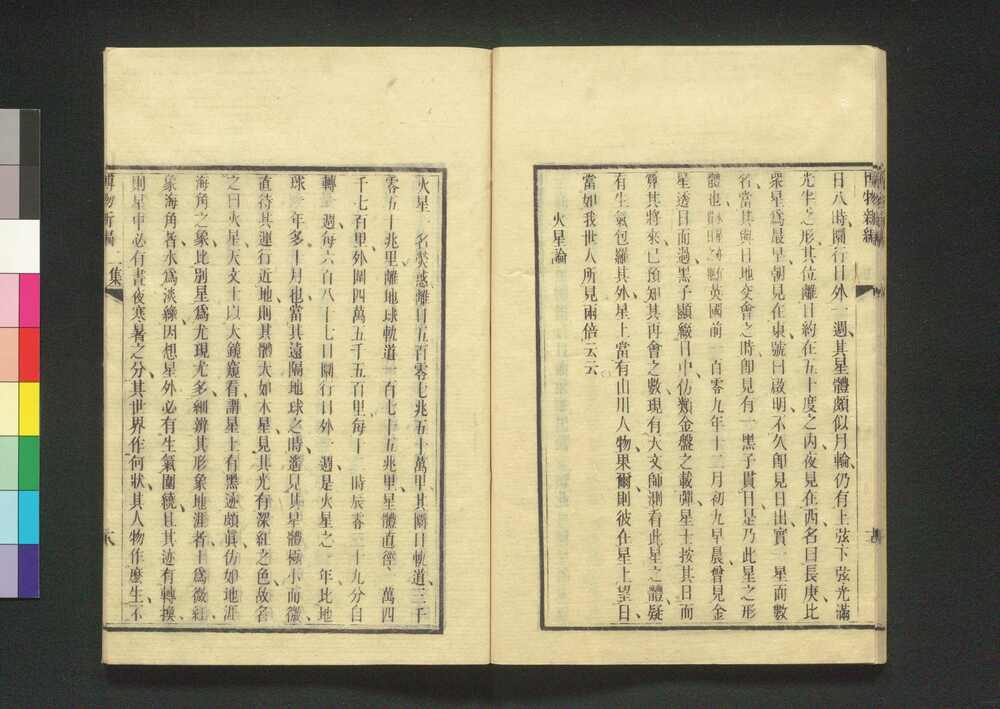 日八時圜行日外一週其星體頗似月輪仍有上弦下弦光滿
光半之形其位離日約在五十度之內夜見在西名曰長庚比
衆星爲最早朝見在東號曰啟明不久卽見日出實一星而數
名當其與日地交會之時卽見有一黑子貫日是乃此星之形
體也 英國前一百零九年十二月初九早晨曾見金
星透日而過黑子顯綴日中仿類金盤之載彈星士按其日而
算其將來已預知其再會之數現有天文師測看此星之體疑
有生氣包羅其外星上當有山川人物果爾則彼在星上望日
當如我世人所見兩倍云云
火星論
火星一名熒惑離日五百零七兆五十萬里其圜日軌道三千
零五十兆里離地球軌道一百七十五兆里星體直徑一萬四
千七百里外圍四萬五千五百里每十二時辰零三十九分自
轉一週每六百八十七日圜行日外一週是火星之一年比地
球一年多十月也當其遠隔地球之時 見其星體極小而微
直待其運行近地則其體大如木星見其光有深紅之色故名
之曰火星天文士以大鏡窺看謂星上有黑迹頗眞仿如地涯
海角之象比別星爲尤現尤多細辨其形象地涯者土爲微紅
象海角者水爲淡綠因想星外必有生氣圍繞且其迹有轉換
則星中必有晝夜寒暑之分其世界作何狀其人物作麽生不
博物新編
二集
博物新編